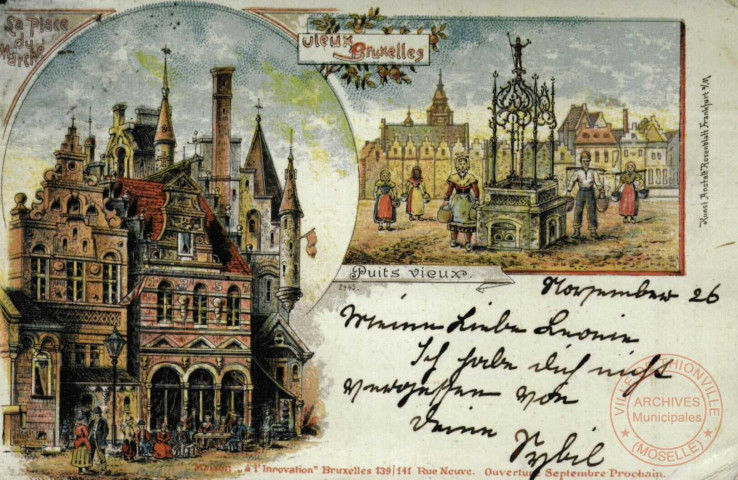 La Place
du
Marché
Vieux
Bruxelles
Puits vieux.
Kunst Anstalt Rosenblatt, Frankfurt a/M
November 26
Meine Liebe Leonie
Ich habe dich nicht
vergessen von
deine
Sybil
VILLE THIONVILLE
ARCHIVES
Municipales
(MOSELLE)
Maison „à l'Innovation" Bruxelles 139/141 Rue Neuve. Ouverture Septembre Prochain.